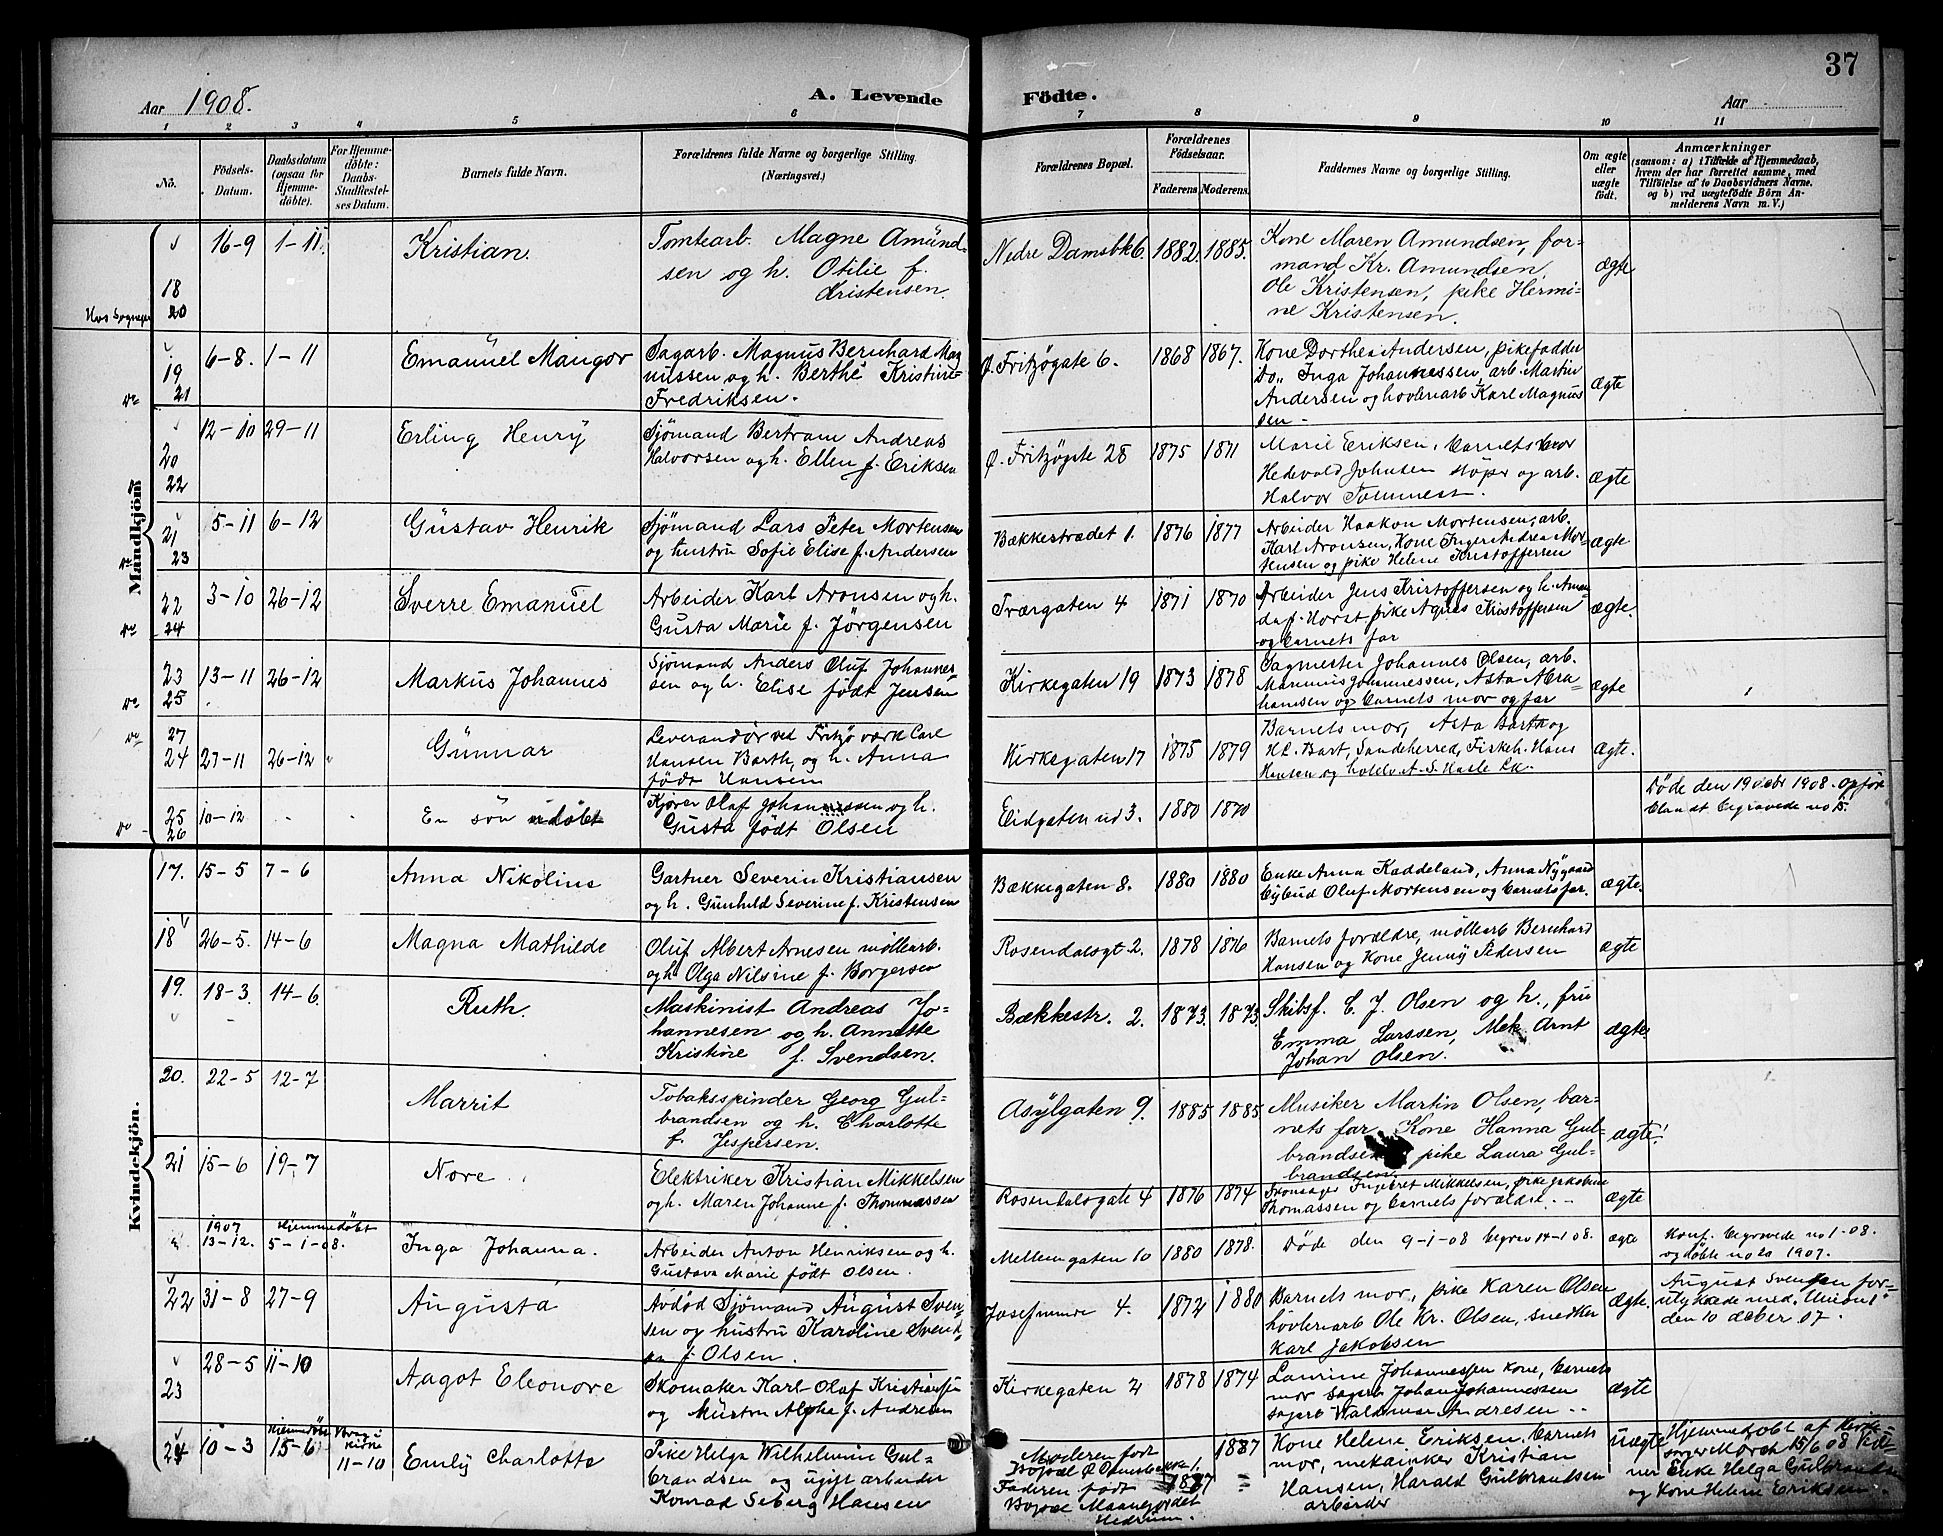 37
Aar 1908.
A. Levende Födte.
Aar
1 2 3 4 5 6 7 8 9 10 11
No.
Födsels-Datum.
Daabsdatum (ogsaa for Hjemme-döbte).
For Hjemme-döbte: Daabs-Stadfæstel-ses Datum.
Barnets fulde Navn.
Forældrenes fulde Navne og borgerlige Stilling.
(Næringsvei.)
Forældrenes Bopæl.
Forældrenes Födselsaar.
Faderens. Moderens.
Faddernes Navne og borgerlige Stilling.
Om ægte eller uægte födt.
Anmærkninger
(saasom: a) i Tilfælde af Hjemmedaab,
hvem der har forrettet samme, med
Tilföielse af to Daabsvidners Navne.
og b) ved uægtefödte Börn An-
melderens Navn m. V.)
Mandkjöm
18 20 16-9 1-11 Kristian.
Tomtearb. Magne Amund-
sen og h. Otilie f.
Kristensen.
Nedre Damsbk 6. 1882. 1885.
Kone Maren Amundsen, for-
mand Kr. Amundsen,
Ole Kristensen, pike Hermi-
ne Kristensen.
Ægte
19 21 6-8. 1-11 Emanuel Mangor
Sagarb. Magnus Bernhard Mag
nussen og h. Berthe Kristine
Fredriksen.
Ø. Fritzögate 6. 1868 1867.
Kone Dorthea Andersen, pike fadder
Do,, Inga Johannessen, arb. Martin
Andersen og hövleriarb Karl Magnus
sen
Ægte
20 22 12-10 29-11 Erling Henry
Sjömand Bertram Andreas
Halvorsen og h. Ellen f. Eriksen
Ø. Fritzögte 28 1875 1871
Marie Eriksen, barnets mor
Hedevald Johnsen og arb.
Halvor
Ægte
21 23 5-11 6-12 Gustav Henrik
Sjömand Lars Peter Mortensen
og hustru Sofie Elise f. Andersen
Bækkestrædet 1. 1876 1877
Arbeider Haakon Mortensen, arb.
Karl Aronsen, Kone Inger Andrea Mor-
tensen og pike Helene Kristoffersen
Ægte
22 24 3-10 26-12 Sverre Emanuel
Arbeider Karl Aronsen og h.
Gusta Marie f. Jörgensen
Tværgaten 4 1871 1870
Arbeider Jens Kristoffersen og h. Aman
da f. Horst pike Agnes Kristoffersen
og barnets far
Ægte.
23 25 13-11 26-12 Markus Johannes
Sjömand Anders Oluf Johannes
sen og h. Elise födt Jensen
Kirkegaten 19 1873 1878
Sagmester Johannes Olsen, arb.
Marinius Johannessen, Asta Abra-
hamsen og barnets mor og far
Ægte
27 24 27-11 26-12 Gunnar
Leverandör ved Fritzö værk Carl
Hansen Barth, og h. Anna
födt Hansen
Kirkegaten 17 1875 1879
Barnets mor, Asta Barth og
H.C. Bart, Sandeherred, Fiskeh. Hans
Hansen og A. S. Hasle
Ægte.
25 26 10-12 En sön udöbt
Kjörer Olaf Johannessen og h.
Gusta födt Olsen
Eidgaten nd 3. 1880 1870
Döde den 19 1908. opför
blandt begravede no 5.
Kvindekjön.
17. 15-5 7-6 Anna Nikoline
Gartner Severin Kristiansen
og h. Gunhild Severine f. Kristensen
Bækkegaten 8. 1880 1880
Enke Anna Kaddeland, Anna Nygaard
Bybud Oluf Mortensen og barnets far.
Ægte.
18 26-5. 14-6 Magna Mathilde
Oluf Albert Arnesen möllearb.
og h. Olga Nilsine f. Borgersen
Rosendalsgt 2. 1878 1876
Barnets forældre, möllearb Bernhard
Hansen og Kone Jenny Pedersen
Ægte
19. 18-3. 14-6. Ruth.
Maskinist Andreas Jo-
hannesen og h. Annette
Kristine f. Svendsen.
Bækkestr. 2. 1873. 1873.
Skibsf. C. J. Olsen og h., fru
Emma Larssen, Mek. Arnt
Johan Olsen.
ægte.
20. 22-5 12-7 Marrit
Tobaksspinder Georg Gul-
brandsen og h. Charlotte
f. Jespersen.
Asylgaten 9. 1885 1885
Musiker Martin Olsen, bar-
nets far, Kone Hanna Gul-
brandsen, pike Laura Gul-
brandsen
ægte!
21 15-6 19-7 Nore
Elektriker Kristian Mikkelsen
og h. Maren Johanne f. Thommassen
Rosendalsgate 4 1876 1874
Ingebret Mikkelsen, pike Jakobine
Thomassen og barnets forældre.
ægte
1907 13-12. Hjemmedöbt 5-1-08. Inga Johanna.
Arbeider Anton Henriksen og h.
Gustava Marie födt Olsen.
Mellemgaten 10 1880 1878.
Döde den 9-1-08 begrav 14-1 08.
ægte
Konf. begravede no 1-08.
og döbte no 20 1907.
22 31-8 27-9 Augusta
Avdöd Sjömand August Sven
sen og hustru Karoline Svend
sen f. Olsen.
Josefinende 4. 1872 1880
Barnets mor, pike Karen Olsen
hövleriarb Ole Kr. Olsen, snedker
Karl Jakobsen
ægte.
August Svensen for-
ulykkede med "Union"
den 10 deber 07.
23 28-5 11-10 Aagot Eleonore
Skomaker Karl Olaf Kristiansen
og hustru Alpha f. Andresen
Kirkegaten 2 1878 1874
Laurine Johannessen kone, barnets
mor sagarb Johan Johannessen
sagarb Waldemar Andresen
ægte
24 10-3 Hjemmedöbt 15-6 kirke 11-10 Emly Charlotte
Pike Helga Wilhelmine Gul-
brandsen og ugift arbeider
Konrad Seberg Hansen
Moderen födt
Bopæl Ø Damsbakke 1.
Faderen födt 1887
Bopæl Maanejordet
Hedrum.
1887
Kone Helene Eriksen, barnets
mor, mekaniker Kristian
Hansen, Harald Gulbrandsen
arbeider
uægte
Hjemmedöbt af
Mörch 15/6 08 Vid-
ner Enke Helga Gulbrandsen
og Kone Helene Eriksen